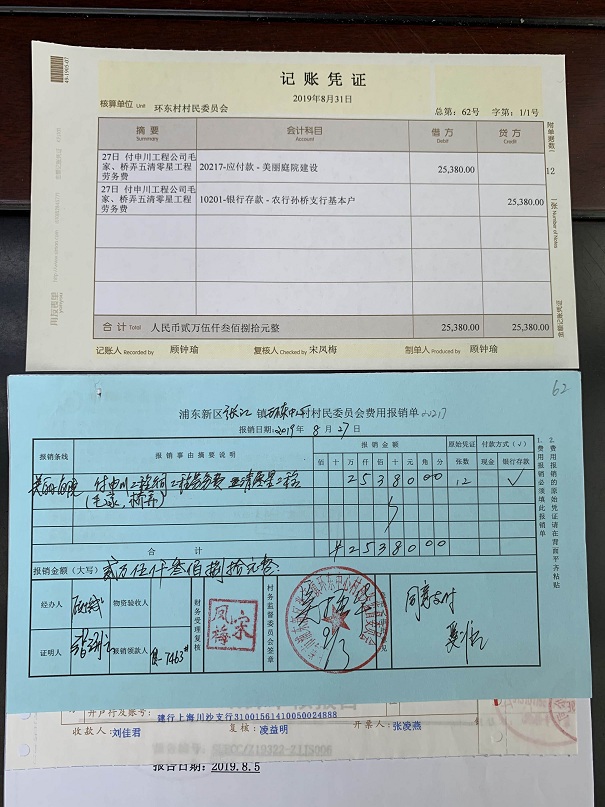 记账凭证
2019年8月31日
核算单位 Unit 环东村村民委员会 总第：62号 字第：1/1号
摘要 会计科目 借方 贷方
Summary Account Debit Credit
27日 付申川工程公司毛家、桥弄五清零星工程劳务费 20217-应付款 - 美丽庭院建设 25,380.00
27日 付申川工程公司毛家、桥弄五清零星工程劳务费 10201-银行存款 - 农行孙桥支行基本户 25,380.00
附单据数 12 张 Number of Notes
合计 Total 人民币贰万伍仟叁佰捌拾元整 25,380.00 25,380.00
记账人 Recorded by 顾钟瑜 复核人 Checked by 宋凤梅 制单人 Produced by 顾钟瑜
62
浦东新区张江镇环东中心村村民委员会费用报销单 20217
报销日期：2019年8月27日
报销条线 报销事由摘要说明 报销金额 原始凭证 付款方式（√）
佰 十 万 仟 佰 十 元 角 分 张数 现金 银行存款
美丽庭院 付申川工程公司工程劳务费 五清零星工程 2 5 3 8 0 0 0 12 √
(毛家、桥弄)
合计 ¥ 2 5 3 8 0 0 0
报销金额（大写） 贰万伍仟叁佰捌拾元整
经办人 物资验收人 财务受理复核 宋凤梅 村务监督委员会签章 9/3 同意支付
证明人 报销领款人 7463#
1.费用报销必须填此报销单
2.费用报销的原始凭证请在背面平齐粘贴
开户行及账号： 建行上海川沙支行31001561410050024888
收款人： 刘佳君 复核： 凌益明 开票人： 张凌燕
报告日期：2019.8.5